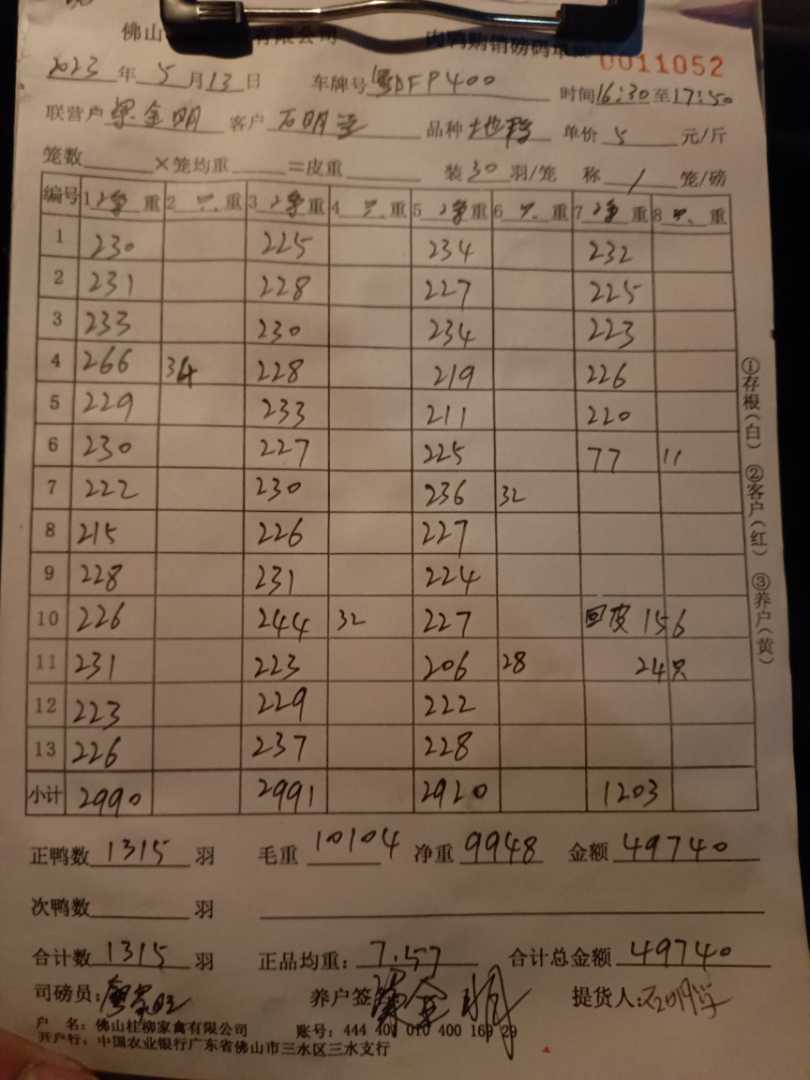 佛山 有限公司 肉鸭购销磅码单 0011052
2023年5月13日 车牌号 粤DFP400 时间16:30至17:50
联营户 梁金明 客户 石明 品种 单价 5 元/斤
笼数 ×笼均重 =皮重 装30羽/笼 称 1 笼/磅
编号 1 净重 2 只重 3 净重 4 只重 5 净重 6 只重 7 净重 8 只重
1 230 225 234 232
2 231 228 227 225
3 233 230 234 223
4 266 34 228 219 226
5 229 233 211 220
6 230 227 225 77 11
7 222 230 236 32
8 215 226 227
9 228 231 224
10 226 244 32 227 回皮 156
11 231 223 206 28 24只
12 223 229 222
13 226 237 228
小计 2990 2991 2920 1203
正鸭数 1315 羽 毛重 10104 净重 9948 金额 49740
次鸭数 羽
合计数 1315 羽 正品均重: 7.57 合计总金额 49740
司磅员: 养户签 梁金明 提货人: 石明
户 名: 佛山桂柳家禽有限公司 账号: 444 401 010 400 169 29
开户行: 中国农业银行广东省佛山市三水区三水支行
①存根(白) ②客户(红) ③养户(黄)